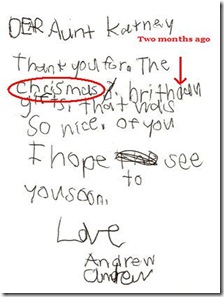 DEAR Aunt Katney
Two months ago
Thank you for. The
chrismas /. brithday
gifts. that was
So nice. of you
I hope see
to
you soon.
Love
Andrew
andrew